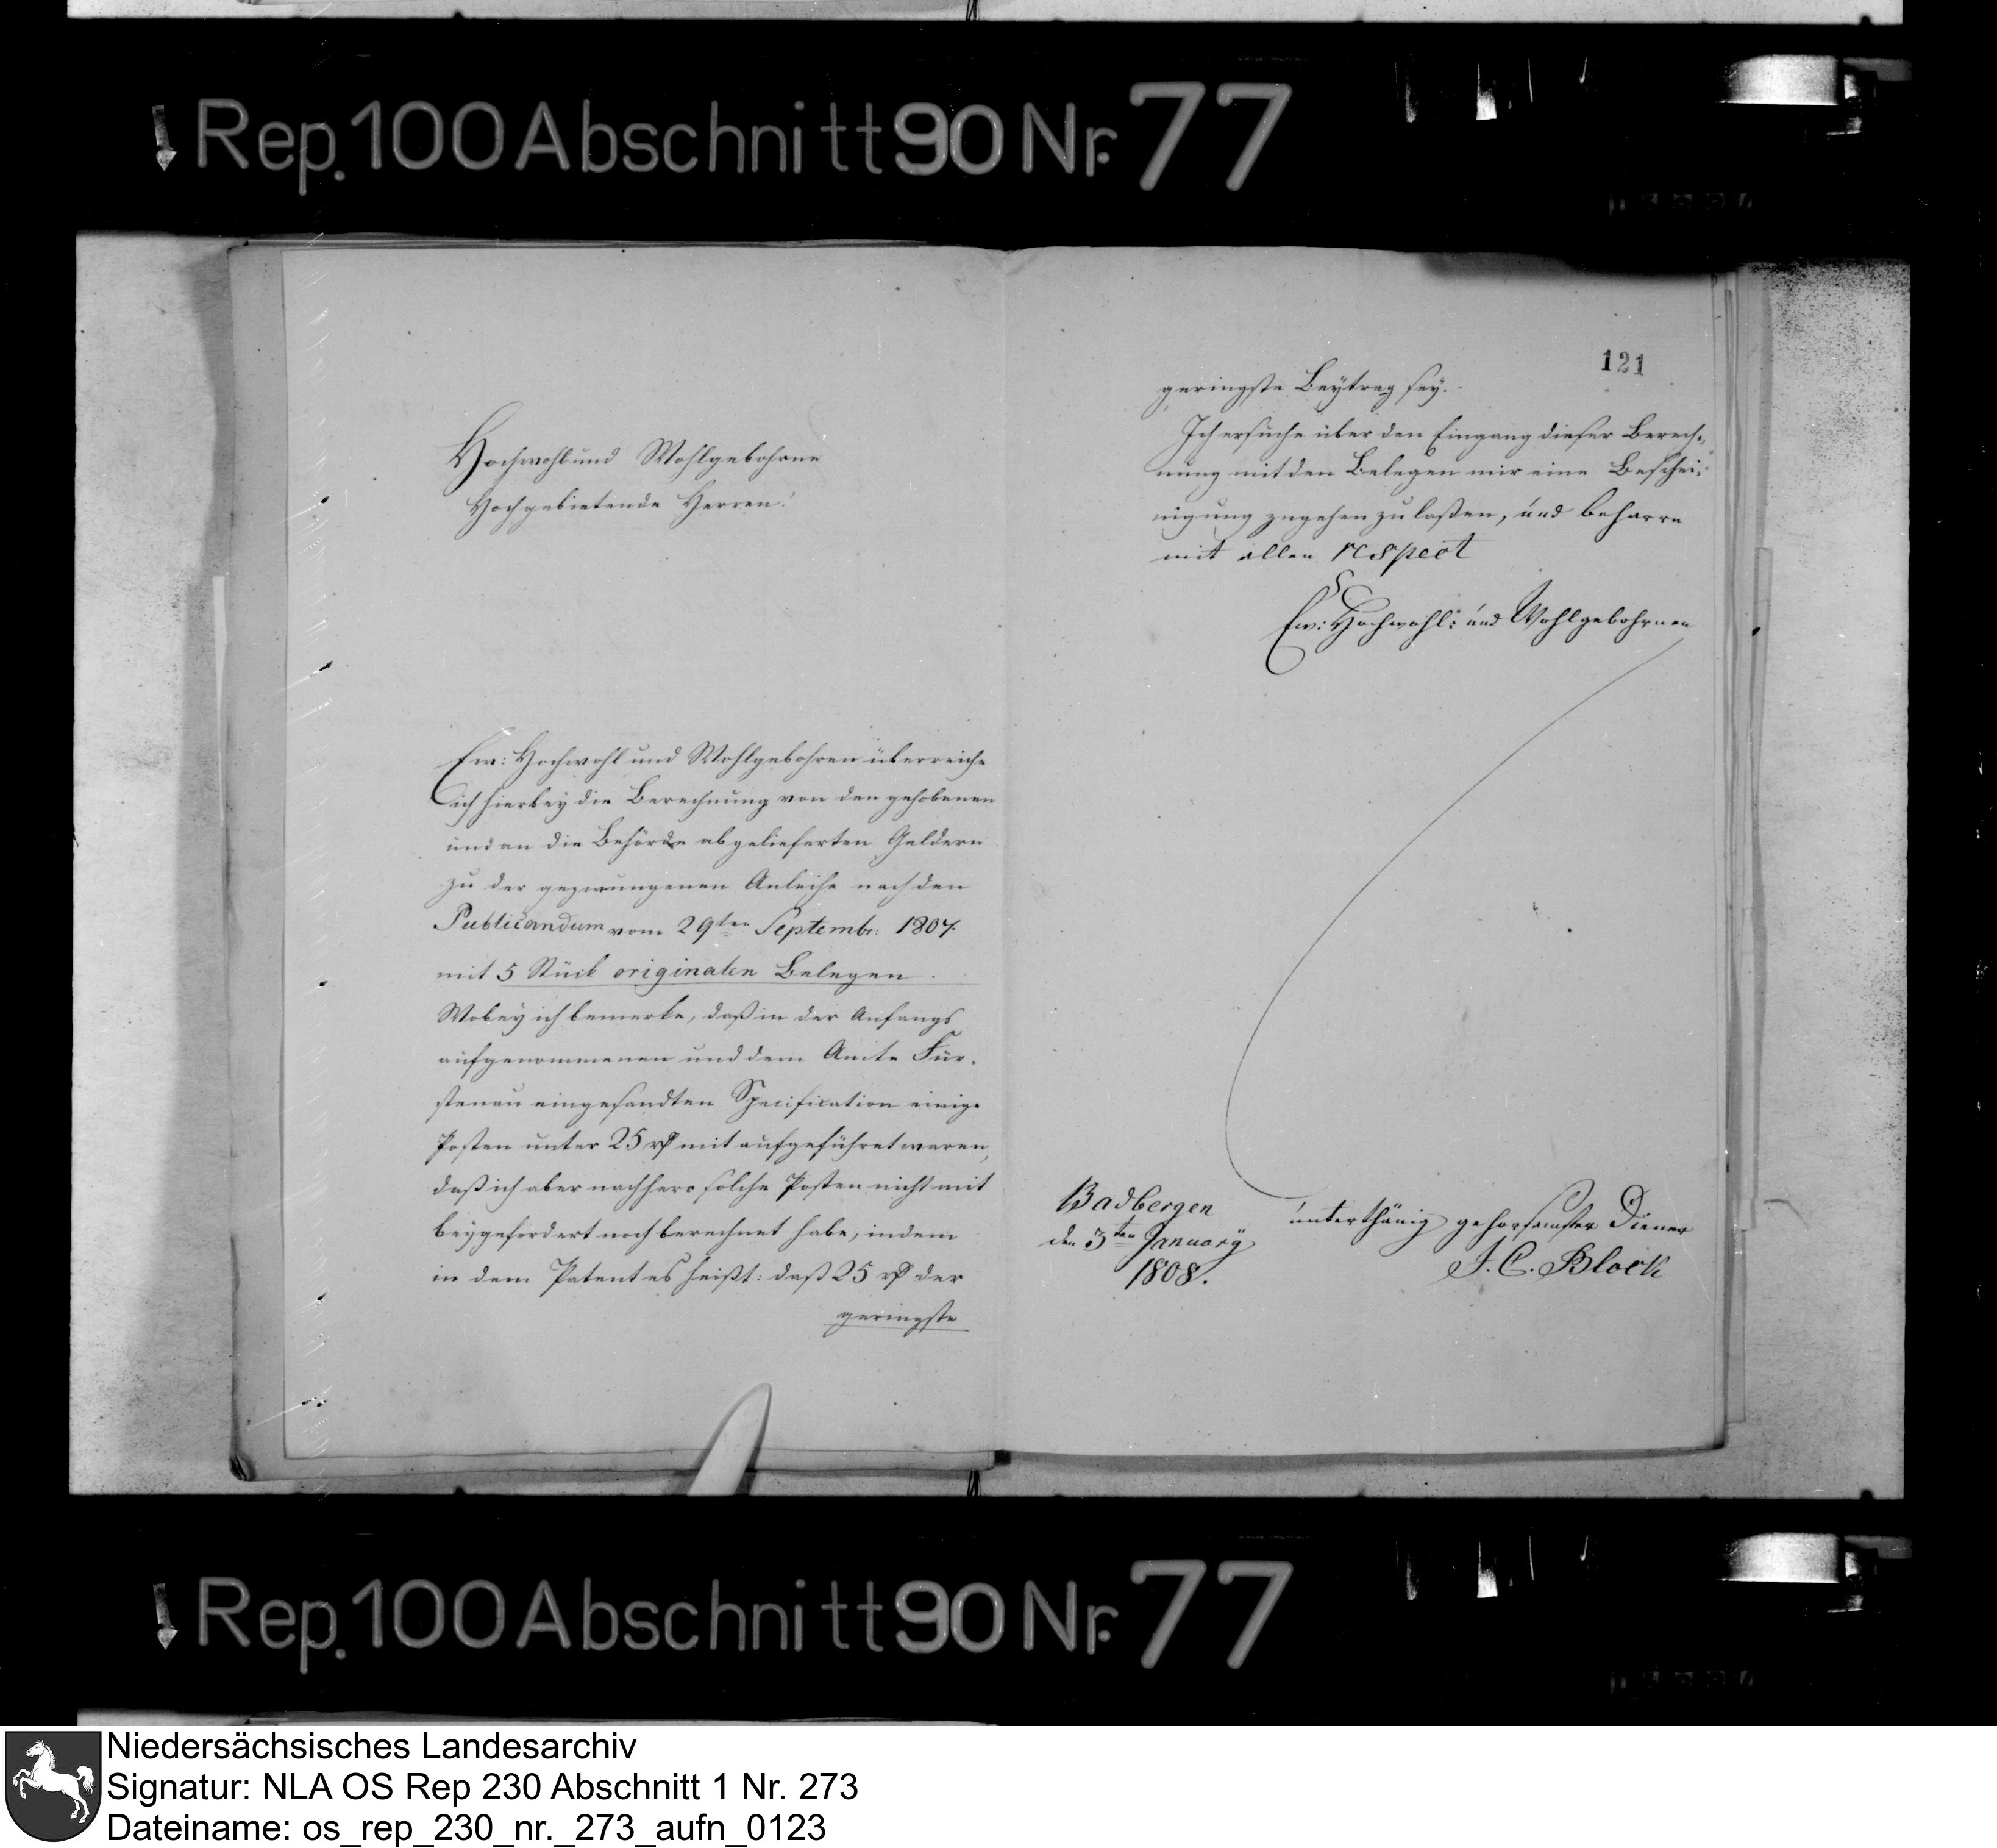 Rep. 100 Abschnitt 90 Nr. 77
Hochwohl und Wohlgebohrne
Hochgebietende Herren!
Ew: Hochwohl und Wohlgebohren überreiche
ich hierbey die Berechnung von den gehobenen
und an die Behörde abgelieferten Geldern
zu der gezwungenen Anleihe nach den
Publicandum vom 29ten Septembr: 1807.
mit 5 Stück originalen Belegen.
Wobey ich bemerke, daß in der Anfangs
aufgenommenen und dem Amte Für-
stenau eingesandten Specification einige
Posten unter 25 rß mit aufgeführet waren,
daß ich aber nachhero solche Posten nicht mit
beygefordert noch berechnet habe, indem
in dem Patent es heißt: daß 25 rß der
geringste
121
geringste Beytrag sey.
Ich ersuche über den Eingang dieser Berech-
nung mit den Belegen mir eine Beschei-
nigung zugehen zu laßen, und beharre
mit allen respect
Ew: Hochwohl: und Wohlgebohrnen
Badbergen
den 3ten Januarÿ
1808.
unterthänig gehorsamster Diener
J. C. Block
Rep. 100 Abschnitt 90 Nr. 77
Niedersächsisches Landesarchiv
Signatur: NLA OS Rep 230 Abschnitt 1 Nr. 273
Dateiname: os_rep_230_nr._273_aufn_0123